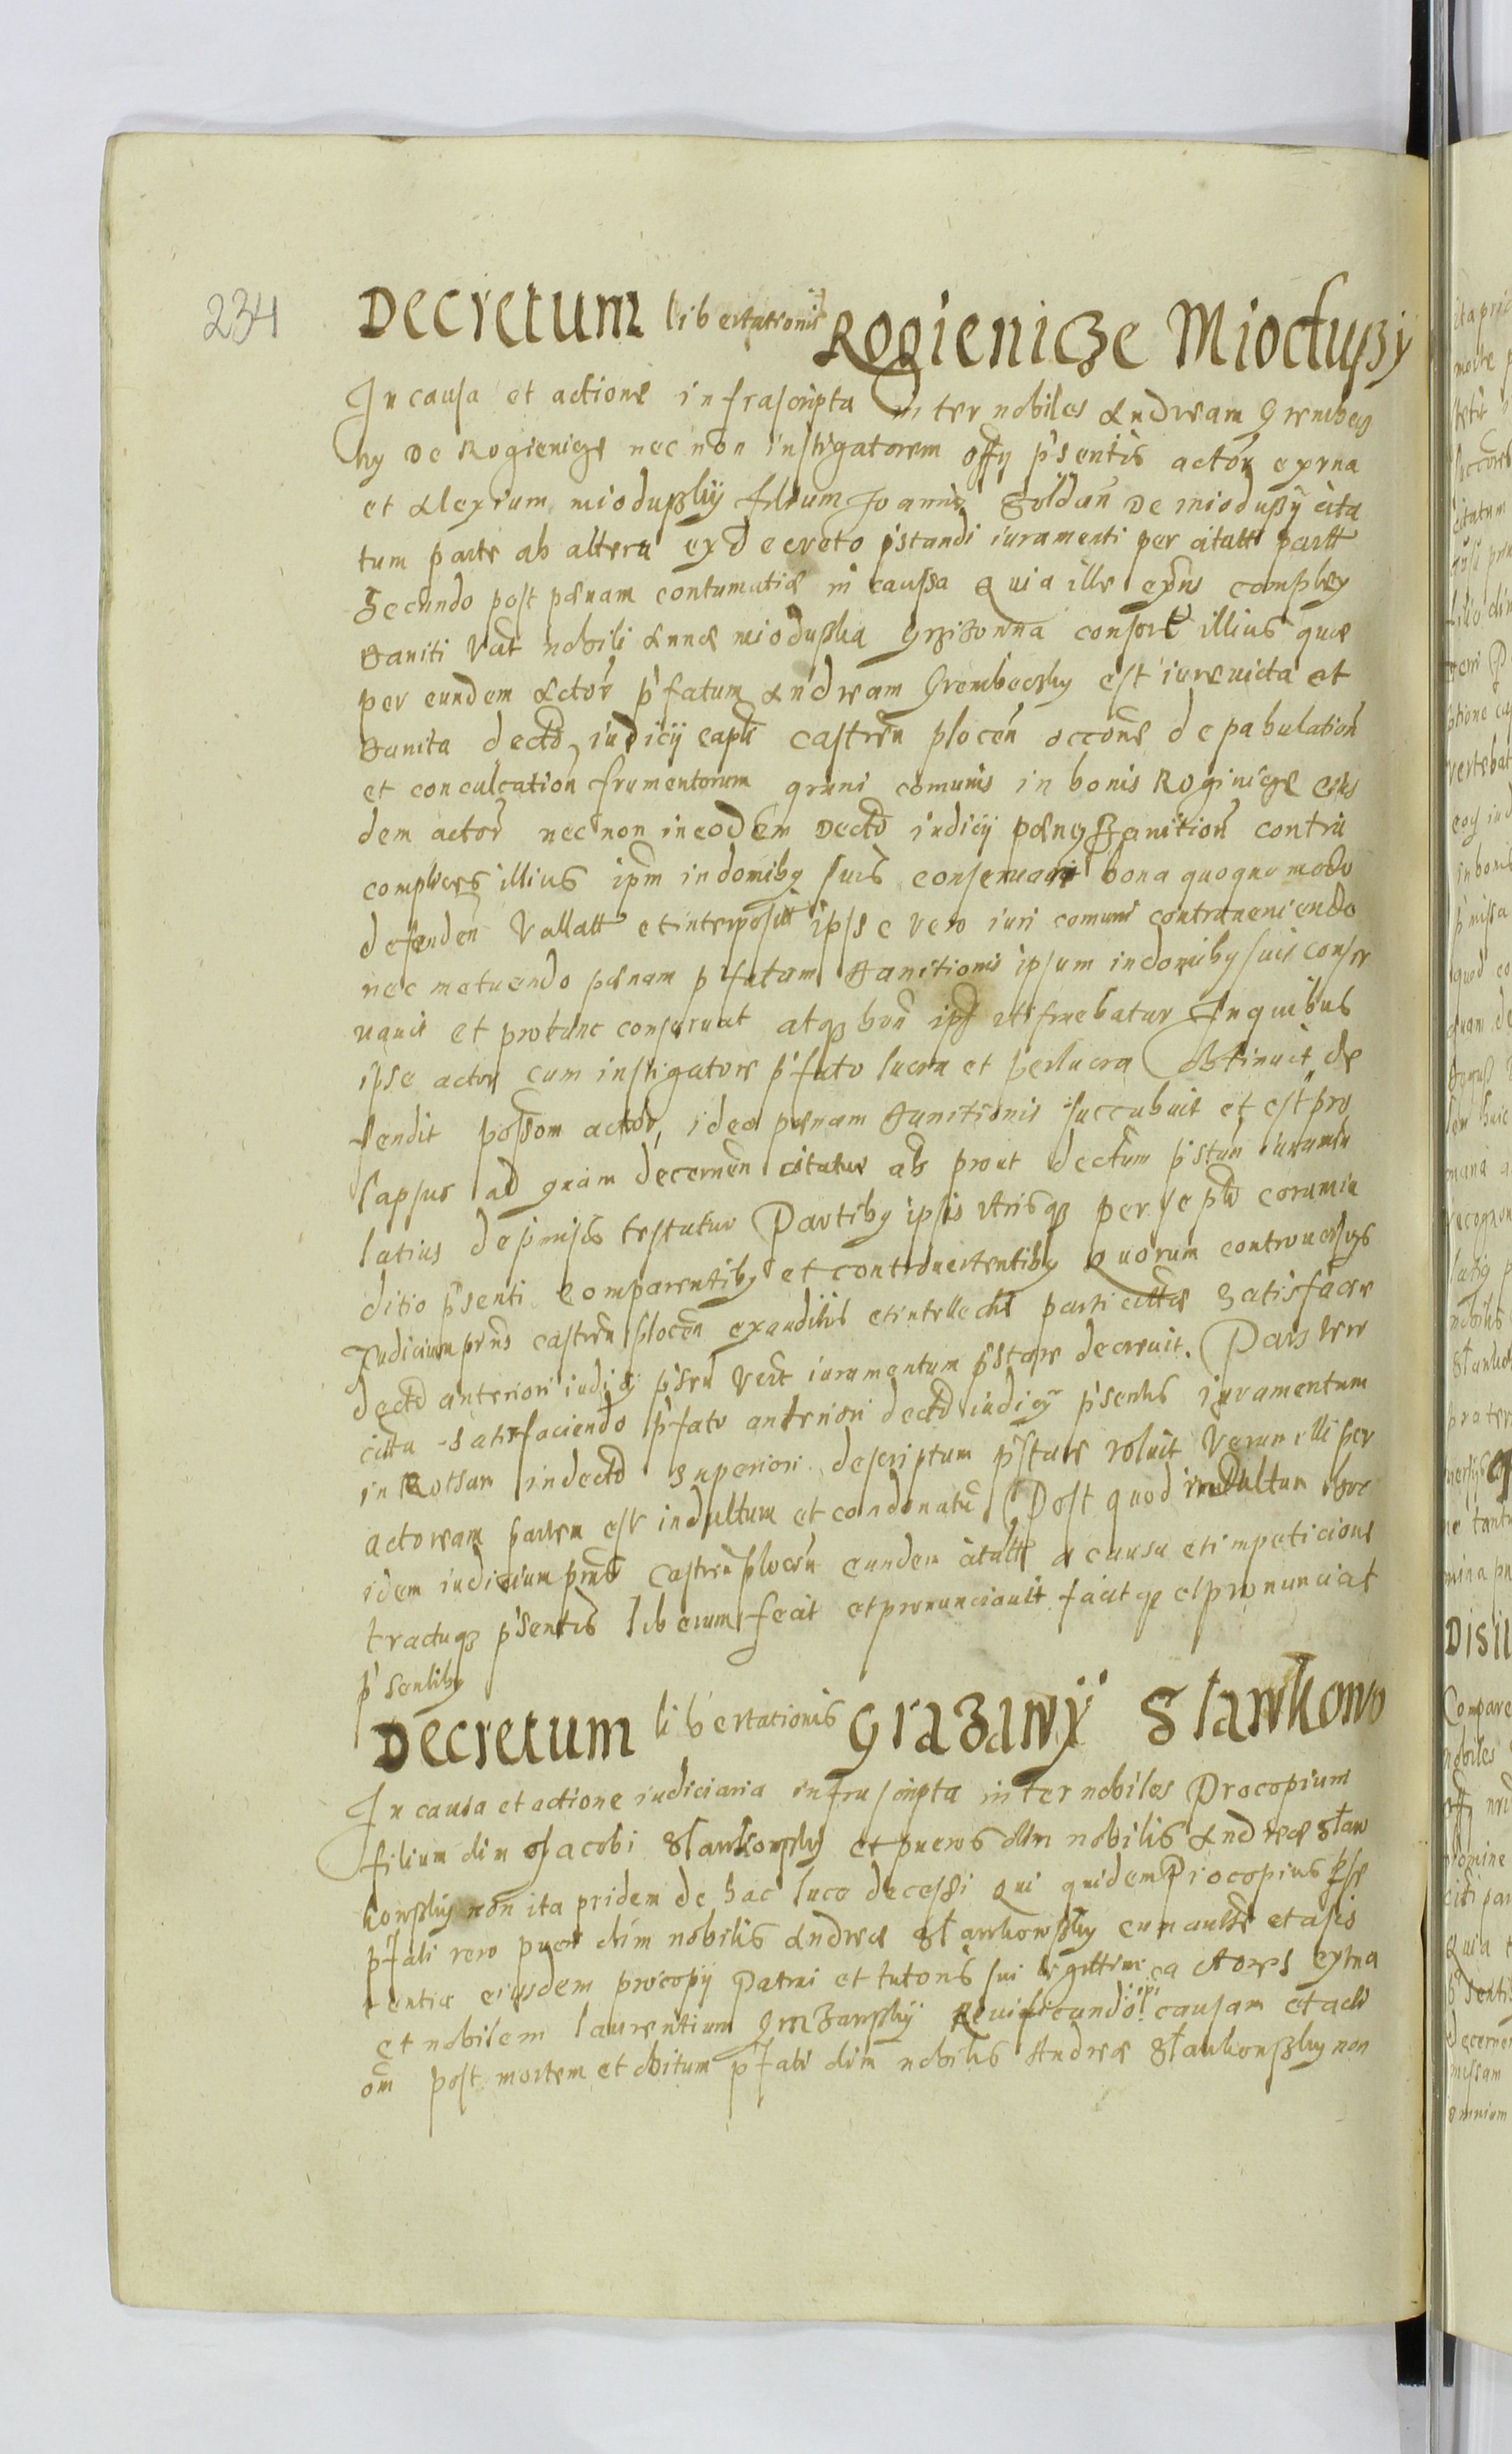 234
Decretum libertationis Rogienicze Mioduszy
In causa et actione infrascripta inter nobiles Andream Grembecz
ky de Rogienicze nec non instigatorem offy p'sentis actor ex una
et Alexium mioduszky filium Joannis Soldan de mioduszy cita
tum parte ab altera ex decreto p'standi iuramenti per citatt partt
Secundo post pænam contumatiæ in caussa Quia ille exns complex
baniti vat nobili Annæ mioduska consorte illius quæ
per eundem Actor p'fatum Andream Grembeczky est iure victa et
banita decto iudicij capli castren plocen occone depabulation
et conculcation frumentorum grani comunis in bonis Roginicze eius
dem actor nec non in eodem decto iudicij pænę banition contra
complices illius ipm in domibg suis conseruari bona quoquo modo
defenden vallatt et interposit ipse vero iuri comuni contraueniendo
nec metuendo pænam p'fatam banitionis ipsum in domibg suis conser
uauit et pro tunc conseruat atqz bon ips utifruebatur In quibus
ipse actor cum instigatore p'fato lucra et perlucra obtinuit de
fendit possom actor, ideo pænam banitionis succubuit et est pro
lapsus ad quam decernen citatur ab prout dectum p'stan iuramen
latius de p'missis testatur Partibg ipsis utrisqz per se pltr coram iu
ditio p'senti comparentibg et controuertentibg Quorum controuersys
Judicium prns castren plocen exauditis et intellectis parti cittæ satisfacere
decto anteriori iudicy p'sen vert iuramentum p'stare decreuit. Pars vero
citta satisfaciendo p'fato anteriori decto iudicy p'sentis iuramentum
in Rotham in decto superiori descriptum p'stare voluit Verum illi per
actoream partem est indultum et condonatu Post quod indultum hoc
idem iudicium prns castren plocen eundem citatt a causa et impeticione
tractuqz p'sentis liberum fecit et pronunciauit facitqz et pronunciat
p'sentibg
Decretum libertationis Grazawy Stawkowo
In causa et actione iudiciaria infrascripta inter nobiles Procopium
filium olim Jacobi Stawkowsky et pueros olim nobilis Andreæ Staw
kowsky non ita pridem de hac luce decessi Qui quidem Procopius p se
p'fati vero pueri olim nobilis Andreæ Stawkowsky cum autte et assis
tentia eiusdem procopy Patrui et tutoris sui legittimi actores ex una
et nobilem laurentium Grazawsky Reuificando ipi causam et acti
om post mortem et obitum p'fati olim nobilis Andreæ Stawkowszky non